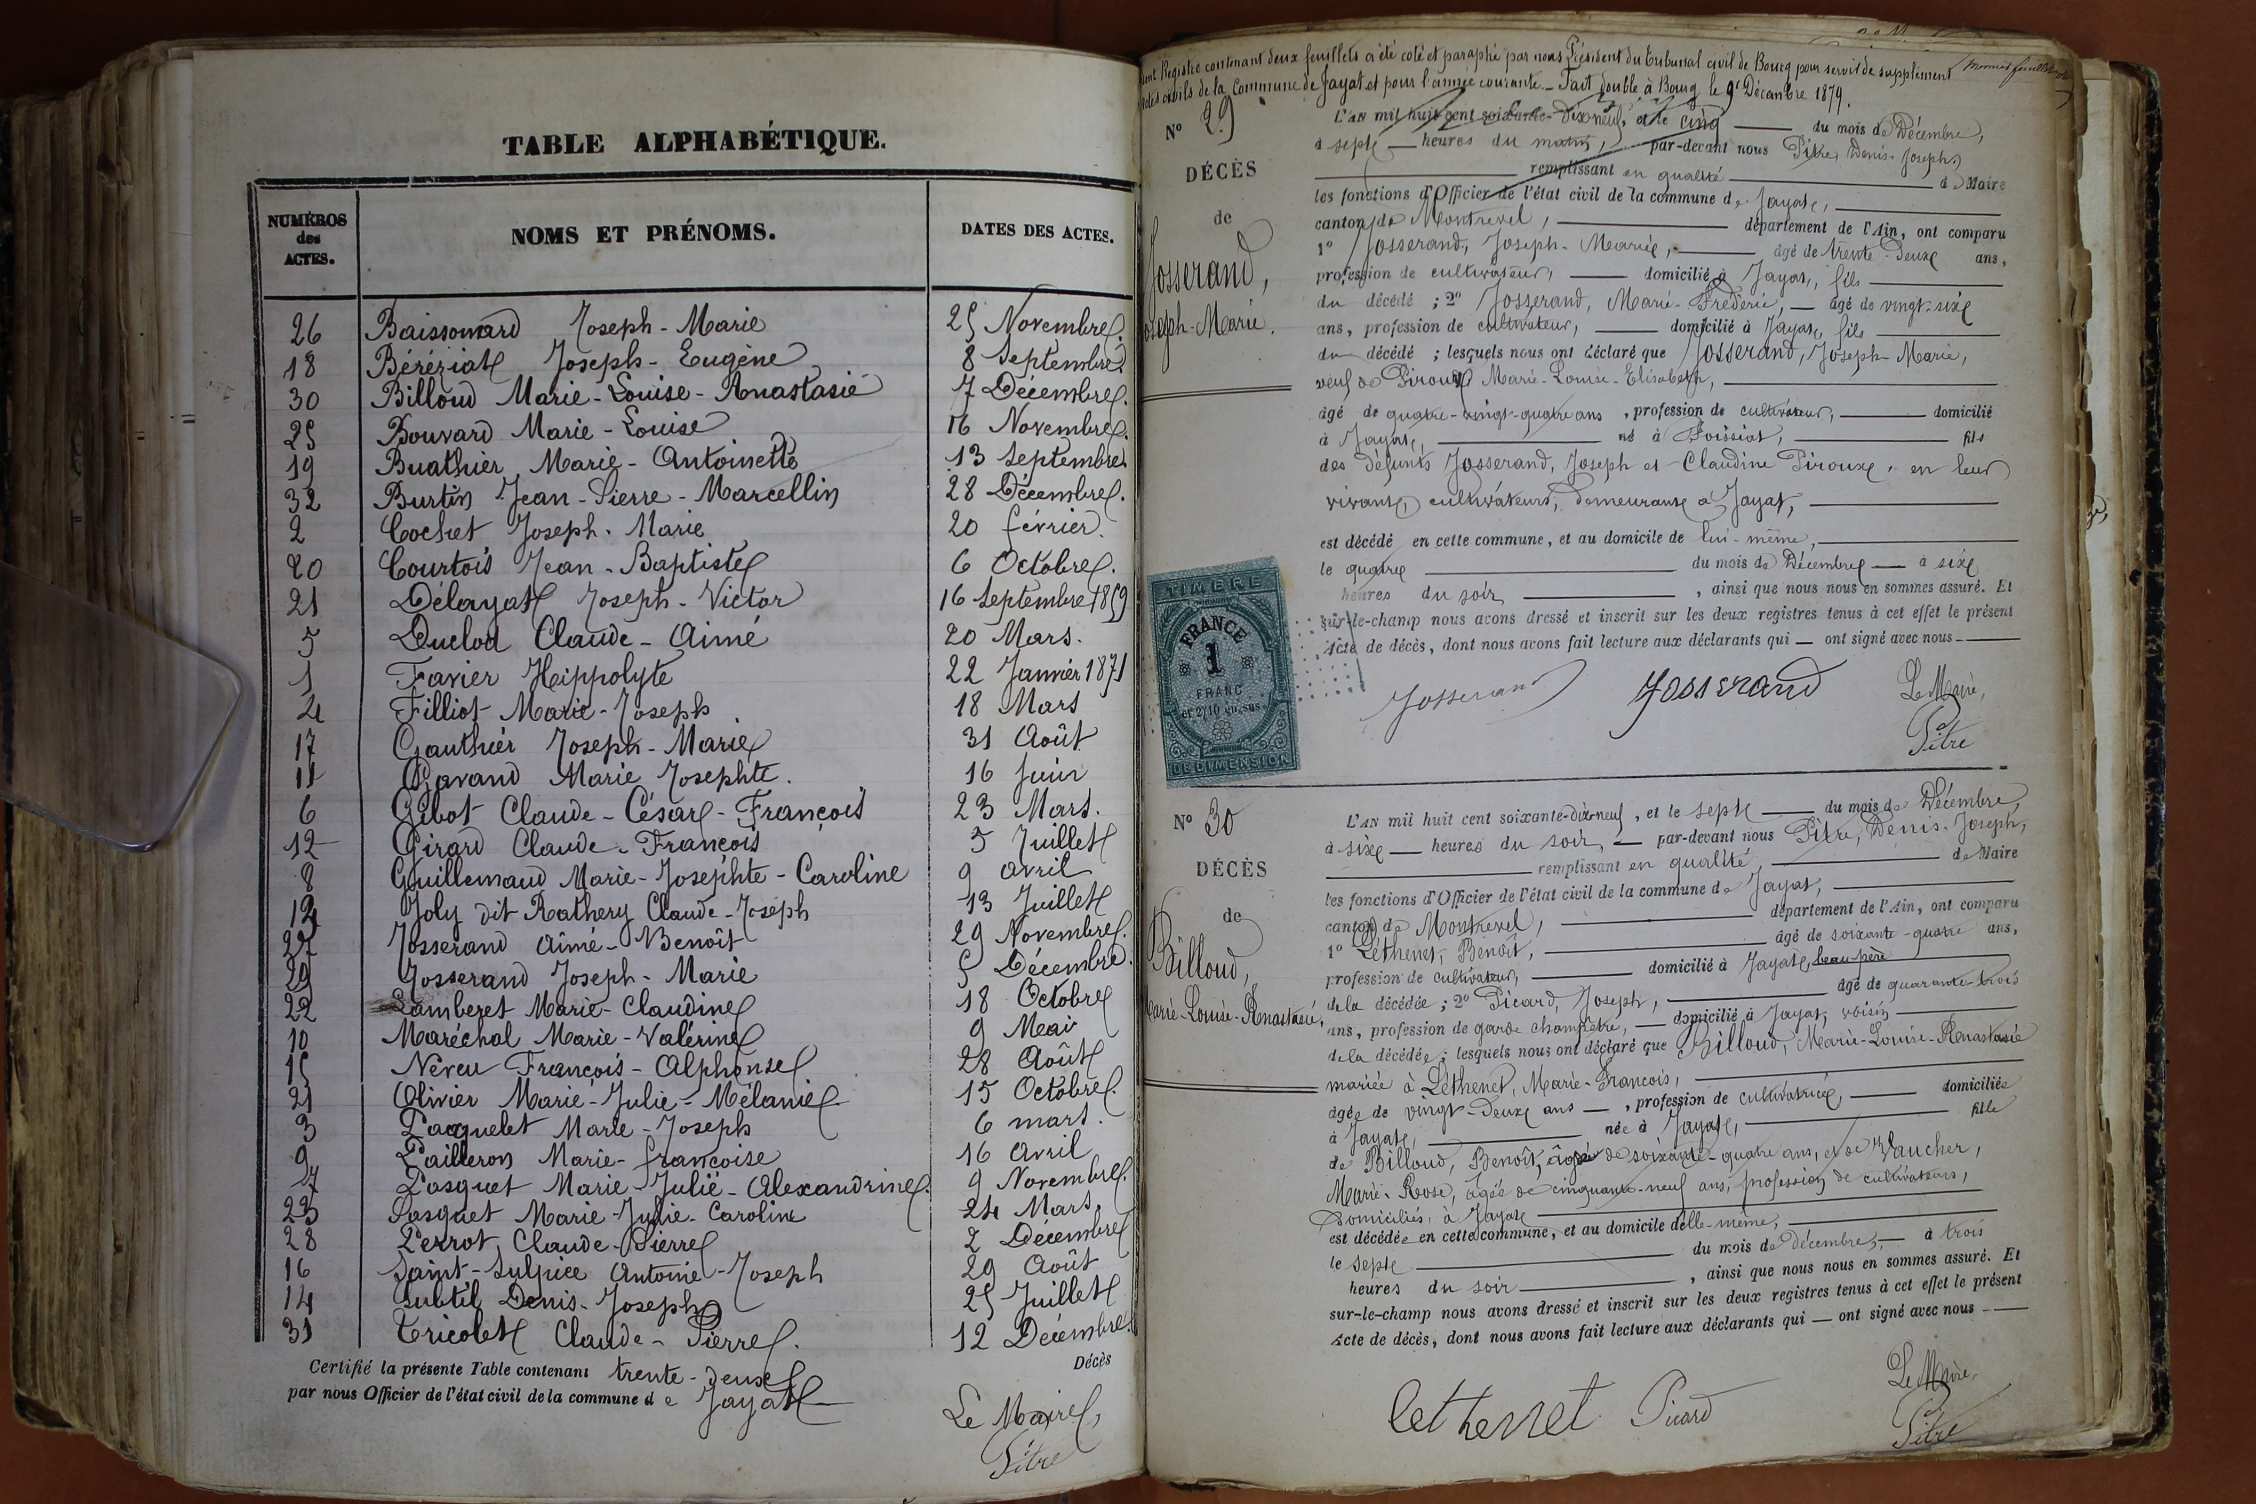 TABLE ALPHABÉTIQUE.
NUMÉROS des ACTES. NOMS ET PRÉNOMS. DATES DES ACTES.
26 Baissonard Joseph-Marie 25 Novembre.
18 Béréziat Joseph-Eugène 8 Septembre.
30 Billoud Marie-Louise-Anastasie 7 Décembre.
25 Bouvard Marie-Louise 16 Novembre.
19 Buathier Marie-Antoinette 13 Septembre.
32 Burtin Jean-Pierre-Marcellin 28 Décembre.
2 Cochet Joseph-Marie 20 février.
20 Courtois Jean-Baptiste 6 Octobre.
21 Délayat Joseph-Victor 16 Septembre 1859
5 Duclod Claude-Aimé 20 Mars.
1 Favier Hippolyte 22 Janvier 1871
4 Filliot Marie-Joseph 18 Mars
17 Gauthier Joseph-Marie 31 Août
11 Gavand Marie Josephte. 16 Juin
6 Gibot Claude-César-François 23 Mars.
12 Girard Claude-François 5 Juillet
8 Guillemaud Marie-Joséphte-Caroline 9 avril
13 Joly dit Rathery Claude-Joseph 13 Juillet
27 Josserand Aimé-Benoît 29 Novembre.
29 Josserand Joseph-Marie 5 Décembre.
22 Lamberet Marie-Claudine 18 Octobre
10 Maréchal Marie-Valérine 9 Mai
15 Neveu François-Alphonse 28 Août
21 Olivier Marie-Julie-Mélanie 15 Octobre.
3 Pacquelet Marie-Joseph 6 mars.
9 Pailleron Marie-françoise 16 Avril
7 Pasquet Marie-Julie-Alexandrine. 9 Novembre.
23 Pasquet Marie-Julie-Caroline 24 Mars.
28 Perrot Claude-Pierre 2 Décembre
16 Saint-Sulpice Antoine-Joseph 29 Août
14 Subtil Denis-Joseph 25 Juillet
31 Tricolet Claude-Pierre. 12 Décembre.
Certifié la présente Table contenant trente-deux Décès
par nous Officier de l'état civil de la commune de Jayat
Le Maire,
Pitre
Registre contenant deux feuillets a été coté et paraphé par nous Président du tribunal civil de Bourg pour servir de supplément
civils de la Commune de Jayat et pour l'année courante. - Fait double à Bourg le 9 Décembre 1879.
N° 29
DÉCÈS
de
Josserand,
Joseph-Marie.
L'AN mil huit cent soixante-dix-neuf, et le cinq du mois de Décembre,
à sept heures du matin, par-devant nous Pitre, Denis-Joseph,
remplissant en qualité de Maire
les fonctions d'Officier de l'état civil de la commune de Jayat,
canton de Montrevel, département de l'Ain, ont comparu
1° Josserand, Joseph-Marie, âgé de trente-Deux ans,
profession de cultivateur, domicilié à Jayat, fils
du décédé ; 2° Josserand, Marie-Frédéric, âgé de vingt-six
ans, profession de cultivateur, domicilié à Jayat, fils
du décédé ; lesquels nous ont déclaré que Josserand, Joseph-Marie,
veuf de Piroux Marie-Louise-Elisabeth,
âgé de quatre-vingt-quatre ans, profession de cultivateur, domicilié
à Jayat, né à Foissiat, fils
des défunts Josserand, Joseph et Claudine Piroux, en leur
vivant, cultivateurs, demeurant à Jayat,
est décédé en cette commune, et au domicile de lui-même,
le quatre du mois de Décembre à six
heures du soir, ainsi que nous nous en sommes assuré. Et
sur-le-champ nous avons dressé et inscrit sur les deux registres tenus à cet effet le présent
Acte de décès, dont nous avons fait lecture aux déclarants qui ont signé avec nous
TIMBRE
FRANCE
1
FRANC
et 2/10 en sus
DE DIMENSION
Josserand Josserand Le Maire,
Pitre
N° 30
DÉCÈS
de
Billoud,
Marie-Louise-Anastasie,
L'AN mil huit cent soixante-dix-neuf, et le sept du mois de Décembre,
à six heures du soir, par-devant nous Pitre, Denis-Joseph,
remplissant en qualité, de Maire
les fonctions d'Officier de l'état civil de la commune de Jayat,
canton de Montrevel, département de l'Ain, ont comparu
1° Léthenet, Benoît, âgé de soixante-quatre ans,
profession de cultivateur, domicilié à Jayat, beau-père
de la décédée ; 2° Picard, Joseph, âgé de quarante-trois
ans, profession de garde champêtre, domicilié à Jayat, voisin
de la décédée ; lesquels nous ont déclaré que Billoud, Marie-Louise-Anastasie
mariée à Léthenet, Marie-François,
âgée de vingt-Deux ans, profession de cultivatrice, domiciliée
à Jayat, née à Jayat, fille
de Billoud, Benoît, âgé de soixante-quatre ans, et de Vaucher,
Marie-Rose, âgée de cinquante-neuf ans, profession de cultivateurs,
Domiciliés à Jayat
est décédée en cette commune, et au domicile d'elle-même,
le sept du mois de Décembre, à trois
heures du soir, ainsi que nous nous en sommes assuré. Et
sur-le-champ nous avons dressé et inscrit sur les deux registres tenus à cet effet le présent
Acte de décès, dont nous avons fait lecture aux déclarants qui ont signé avec nous
Lethenet Picard Le Maire,
Pitre